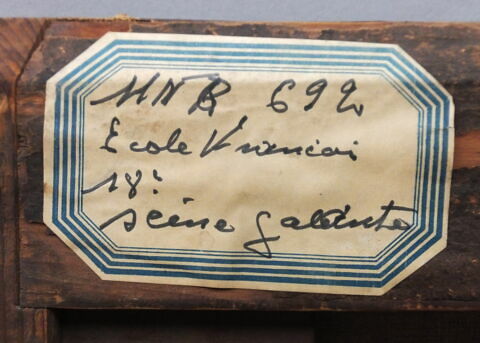 MNR 692
Ecole Francai
18è
scène galante